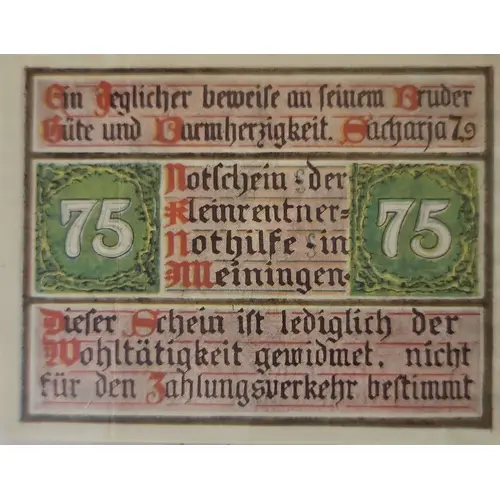 Ein Jeglicher beweise an seinem Bruder
Güte und Barmherzigkeit. Sacharja 7,9
75
Notschein der
Kleinrentner-
Nothilfe in
Meiningen.
75
Dieser Schein ist lediglich der
Wohltätigkeit gewidmet, nicht
für den Zahlungsverkehr bestimmt